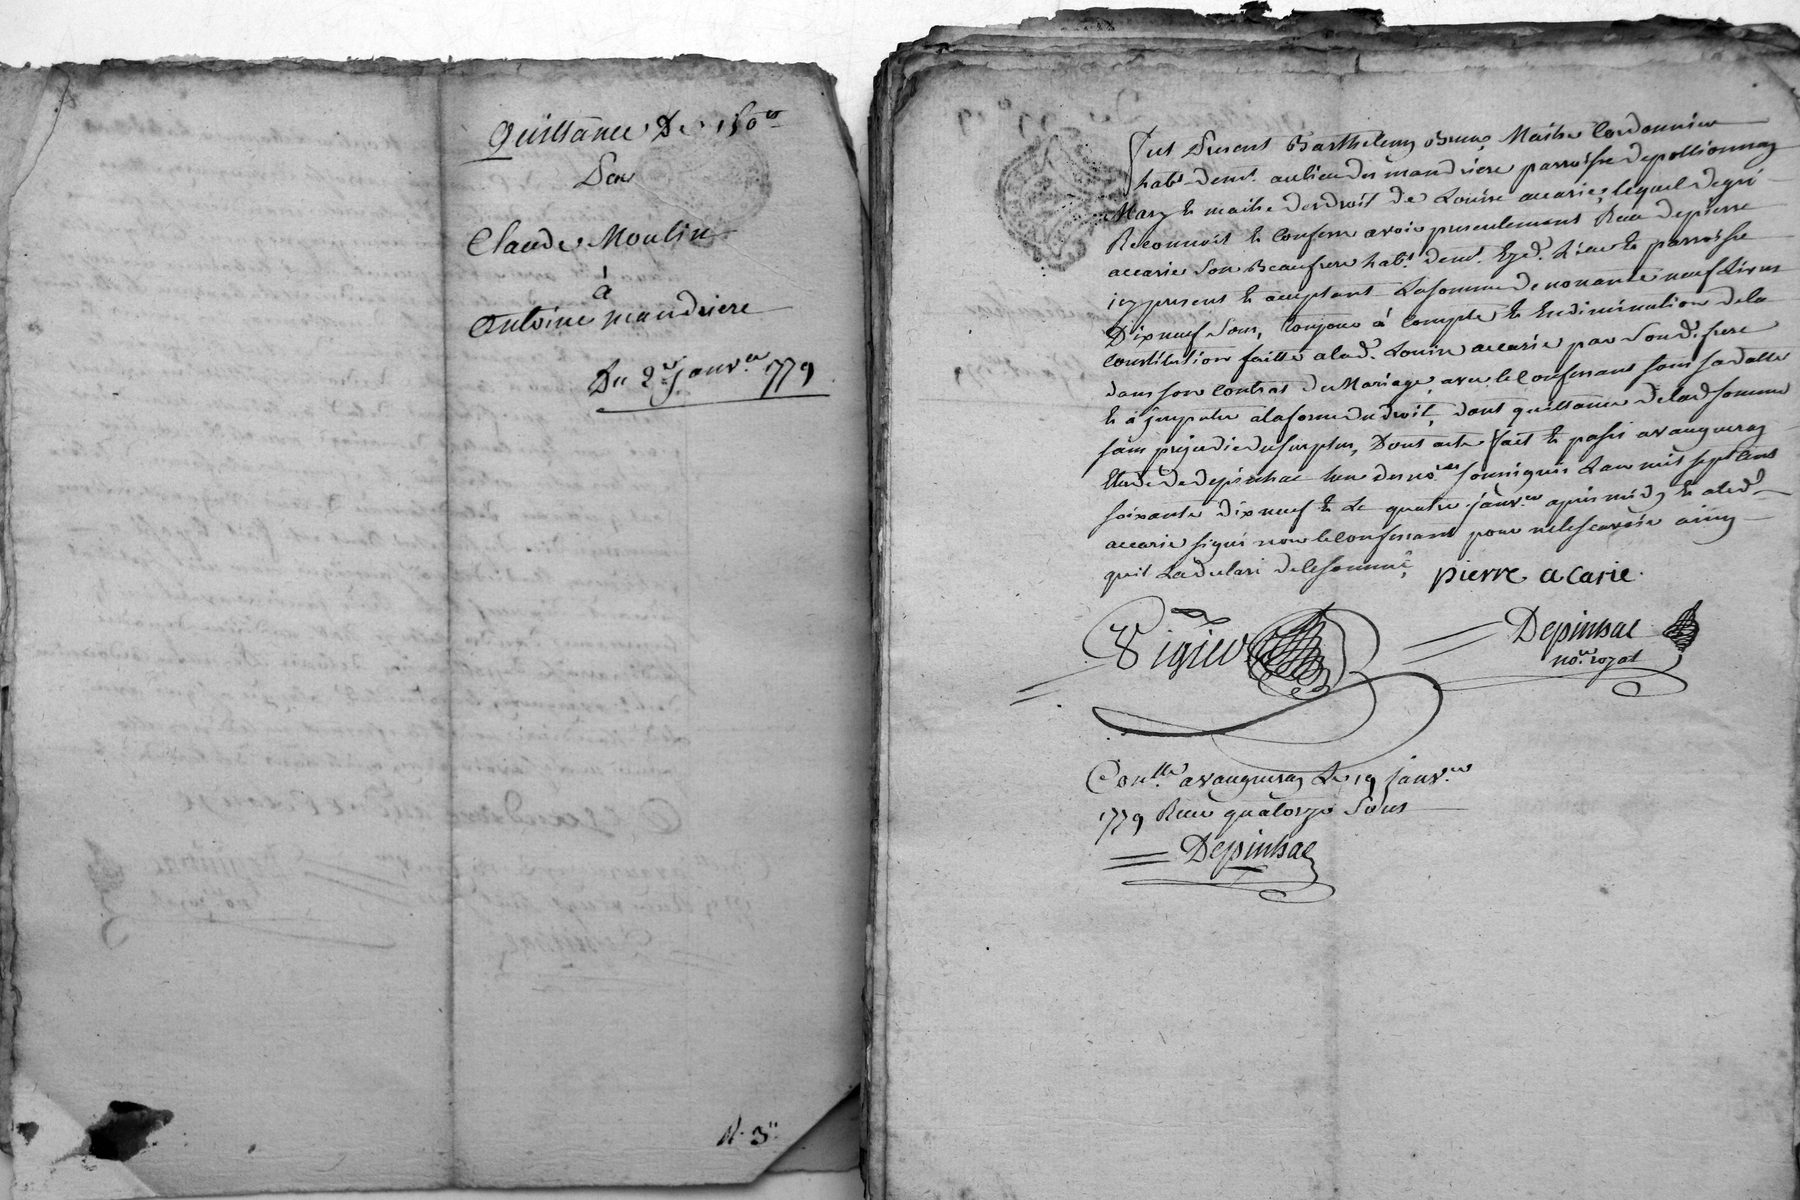 Quittance De 150ᵗᵗ
Par
Claude Moulin
à
Antoine mandriere
Du 2ᵉ janvᵉʳ 1779
N. 3
fut present Barthelemy Brun Maitre Cordonnier
habᵗ demᵗ au lieu des mandriere parroisse de pollionnay
Mary & maitre des droit de Louise accarie, lequel de gré
Reconnoit & confesse avoir presentement Reçu de pierre
accarie son Beaufrere habᵗ demᵗ Ezdᵗ Lieu & parroisse
icy present & acceptant La somme de nonante neuf Livres
Dix neuf sous, toujour à Compte & En diminution de la
Constitution faitte a ladᵗ Louise accarie par son dᵗ frere
dans son Contrat de Mariage avec le Confessant sous sa datte
& à jmputer a la forme du droit, dont quittance de lad somme
sans prejudice du surplus, Dont acte fait & passé a vaugneray
Etude de depinhac l'un des noʳᵉˢ soussignés L'an mil sept Cent
soixante dix neuf & Le quatre janvᵉʳ apres midy & a led
accarie signé non le Confessant pour ne le scavoir ainsy
quil La declaré de le sommé, pierre acarie.
Vigier Depinhac
noʳᵉ royal
Conᵗˡˡᵉ a vaugneray Le 19 janvᵉʳ
1779 Recu quatorze sous
Depinhac